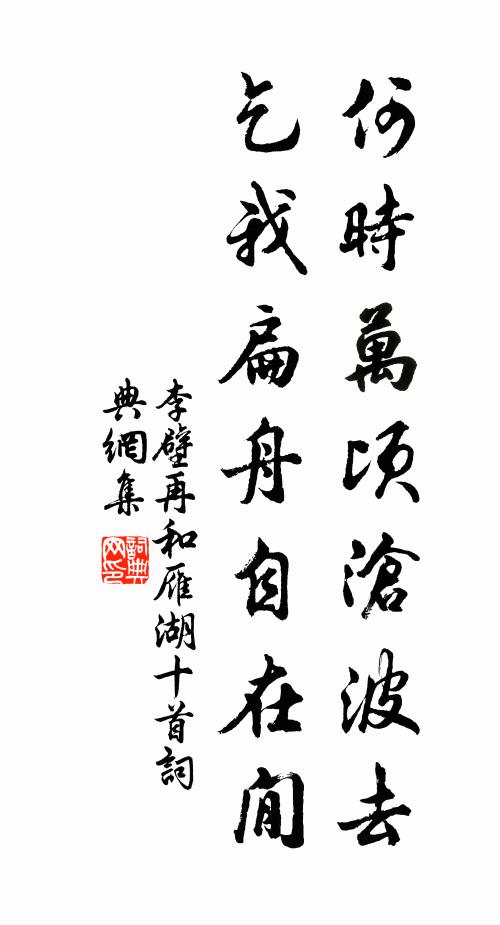 何時萬頃滄波去
乞我扁舟自在閒
李壁再和雁湖十首詞
典網集
詞典網印